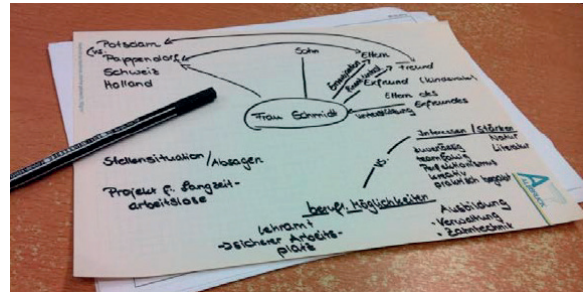 Potsdam
(vs.
Pappendorf
Schweiz
Holland
Sohn
Eltern
Freund
Exfreund (Kundenrat)
Eltern des
Exfreundes
Unterstützung
Frau Schmidt
Stellensituation/Absagen
Projekt f. Langzeit-
arbeitslose
Interessen/Stärken
zuverlässig
teamfähig
Perfektionismus
kreativ
praktisch begabt
Natur
Literatur
vs.
berufl. Möglichkeiten
Lehramt
->sicherer Arbeits-
platz
Ausbildung
- Verwaltung
- Zahntechnik